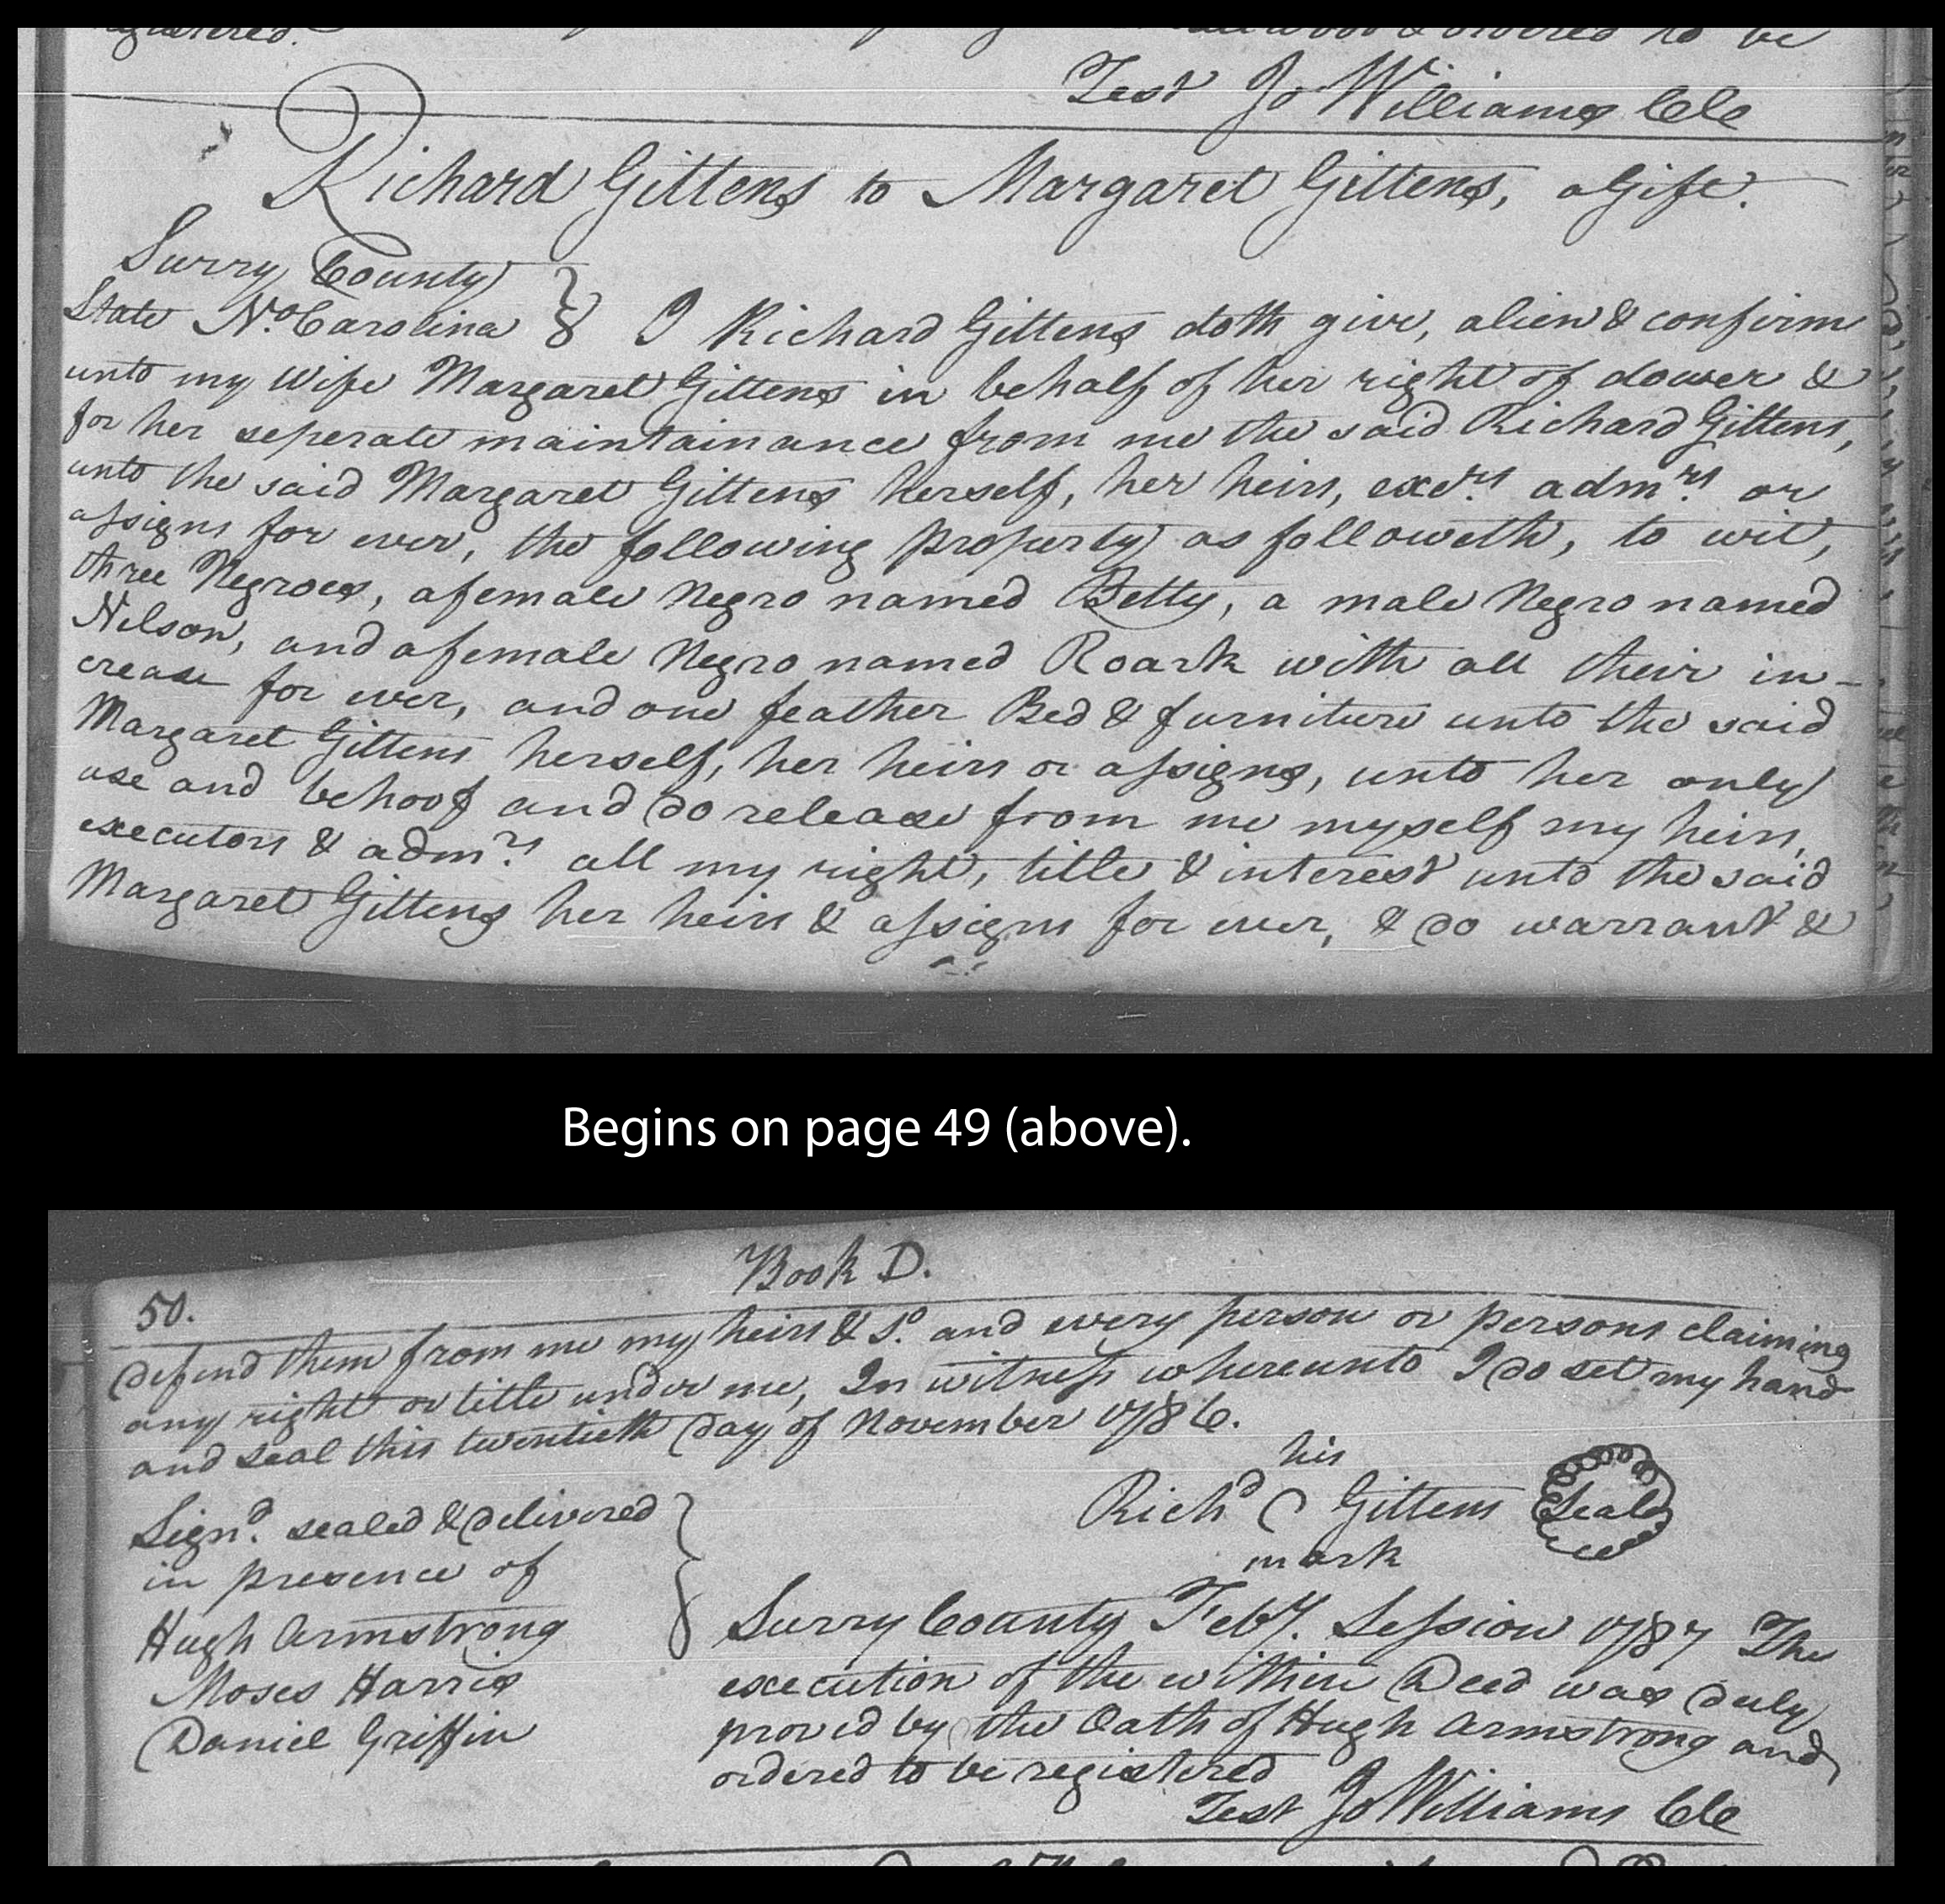 registered. & ordered to be
Test Jo Williams Cle
Richard Gittens to Margaret Gittens, a Gift.
Surry County
State No. Carolina } I Richard Gittens doth give, alien & confirm
unto my Wife Margaret Gittens in behalf of her right of dower &
for her seperate maintainance from me the said Richard Gittens,
unto the said Margaret Gittens herself, her heirs, exers. admrs. or
assigns for ever, the following property as followeth, to wit,
three Negroes, a female Negro named Betty, a male Negro named
Nelson, and a female Negro named Roark with all their in-
crease for ever, and one feather Bed & furniture unto the said
Margaret Gittens herself, her heirs or assigns, unto her only
use and behoof and do release from me myself my heirs,
executors & admrs. all my right, title & interest unto the said
Margaret Gittens her heirs & assigns for ever, & do warrant &
Begins on page 49 (above).
Book D.
50.
defend them from me my heirs & So. and every person or persons claiming
any right or title under me, In witness whereunto I do set my hand
and seal this twentieth day of November 1786.
his
Richd C Gittens Seal
mark
Signd. sealed & delivered
in presence of
Hugh Armstrong
Moses Harris
Daniel Griffin
Surry County Feby. Session 1787 The
execution of the within Deed was duly
proved by the Oath of Hugh Armstrong and
ordered to be registered
Test Jo Williams Cle